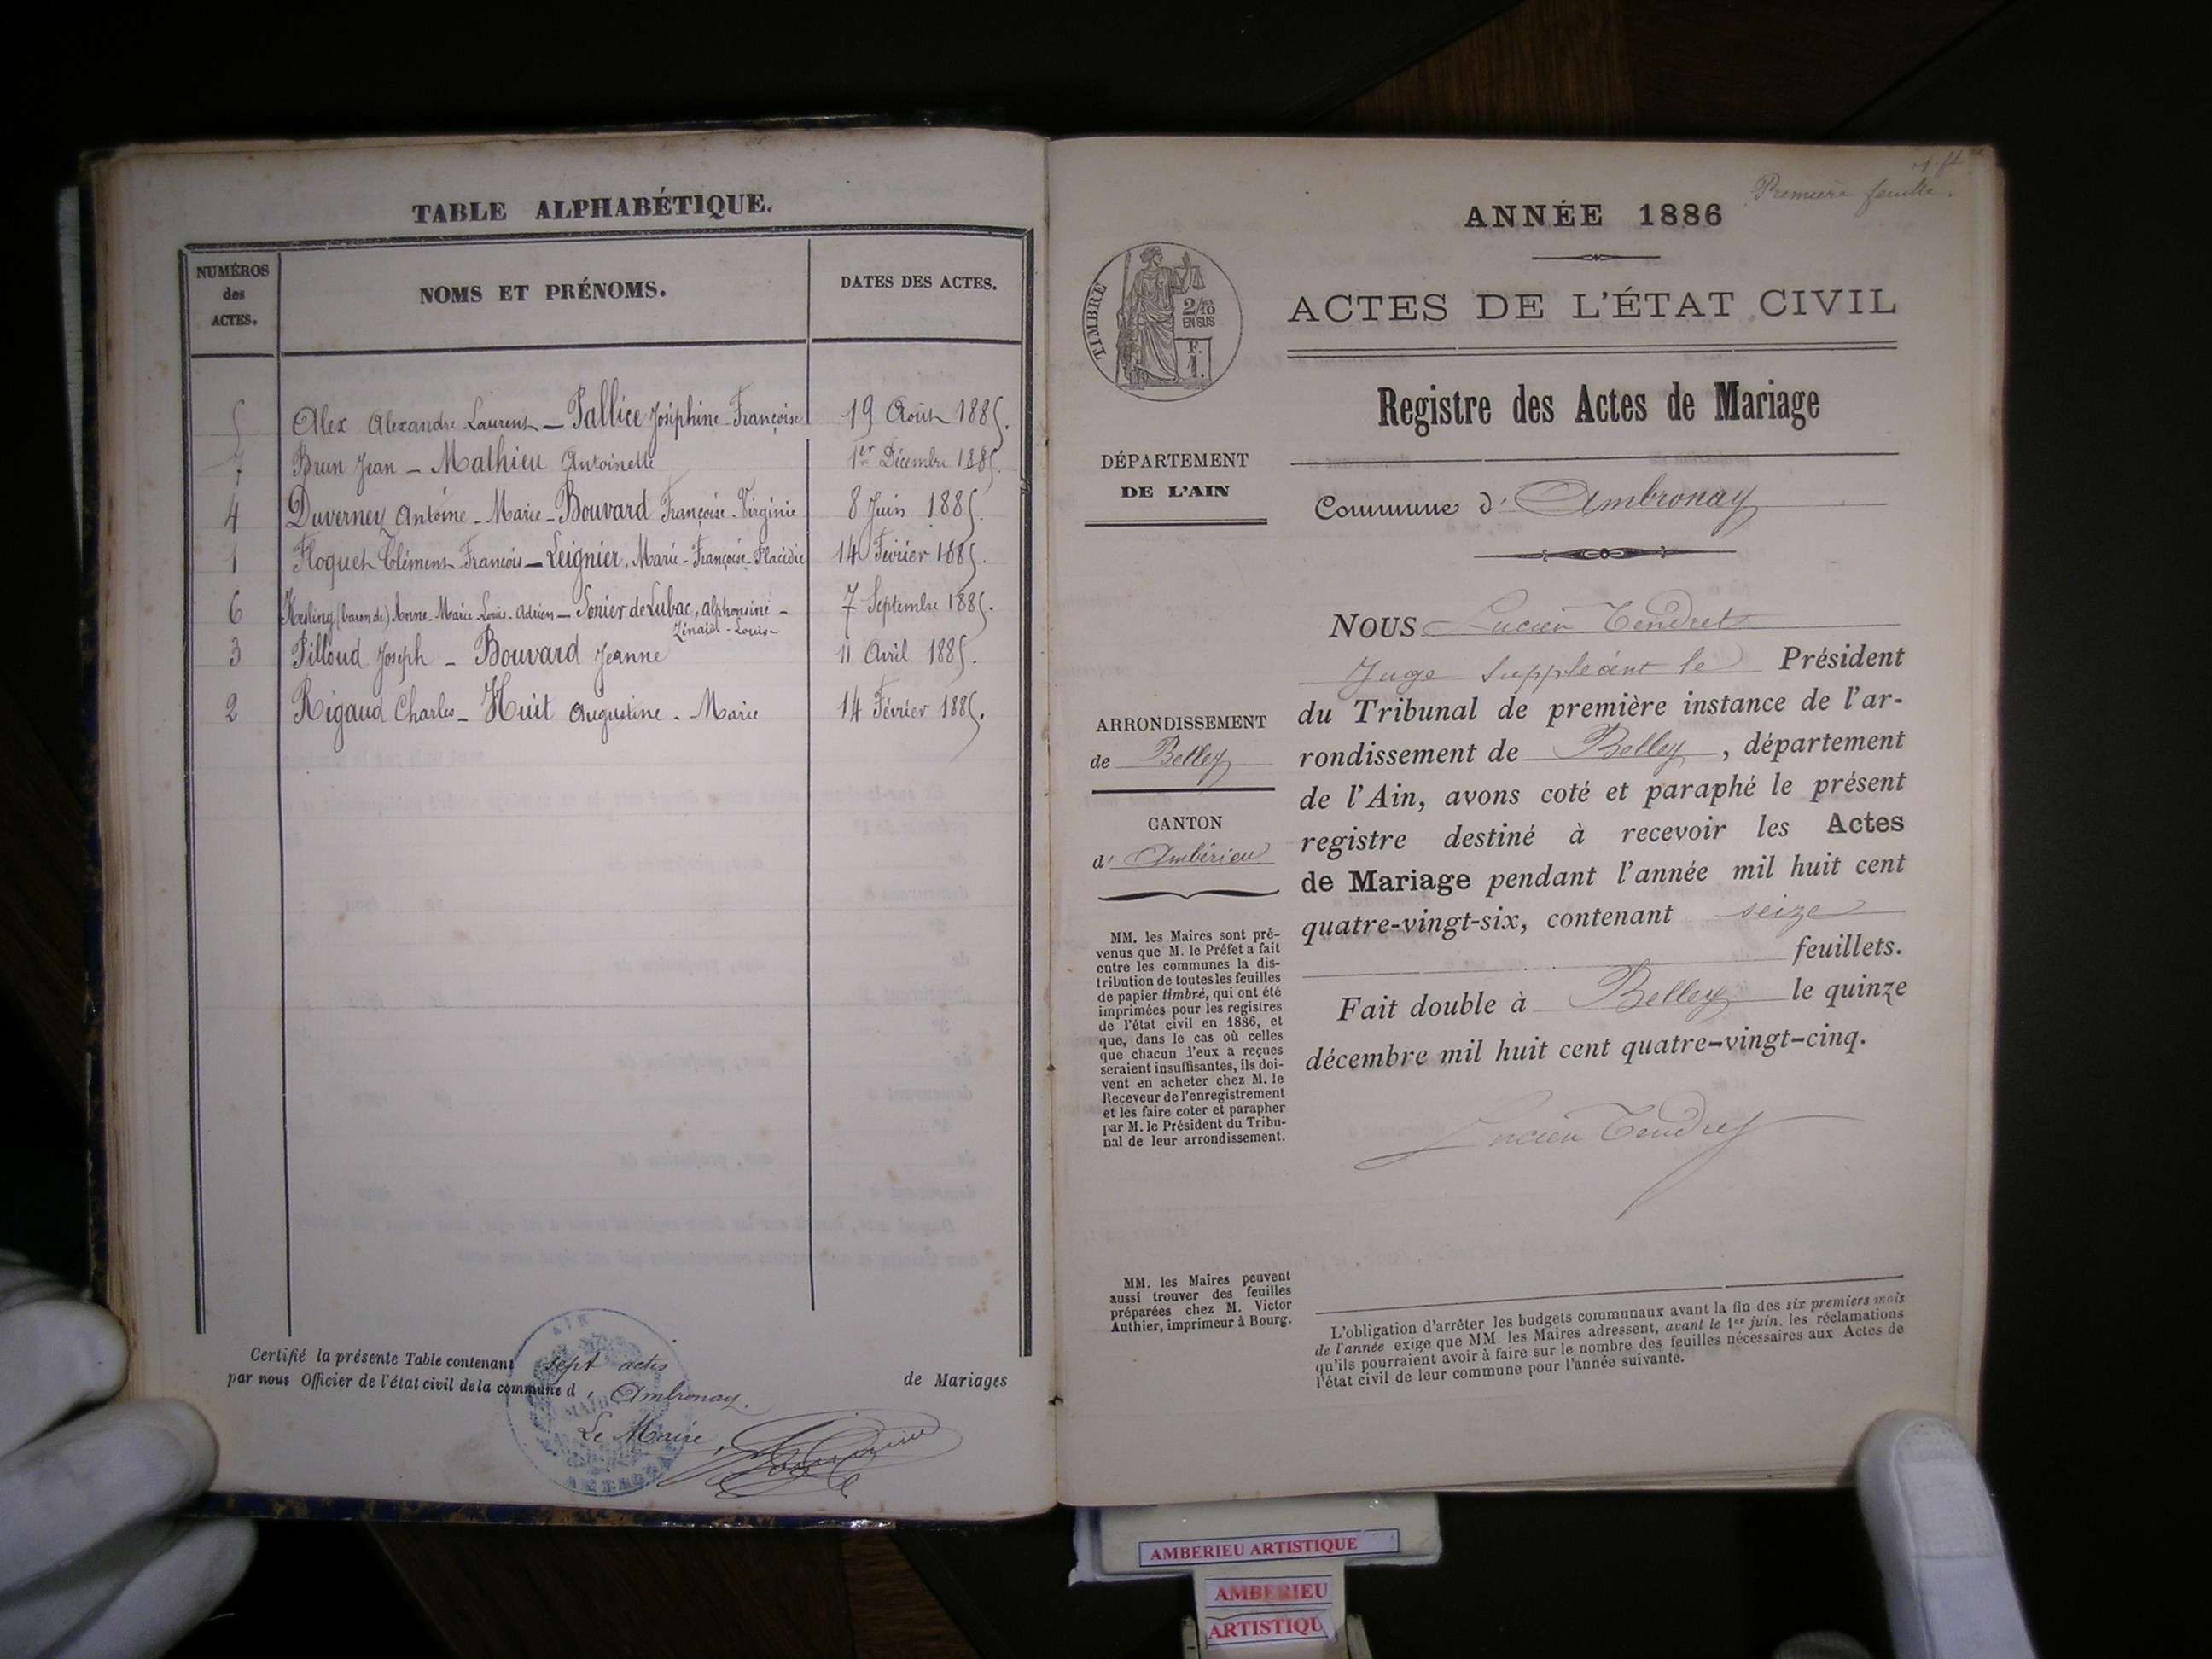 TABLE ALPHABÉTIQUE.
NUMÉROS
des
ACTES.
NOMS ET PRÉNOMS.
DATES DES ACTES.
5 Alex Alexandre Laurent — Pallice Joséphine-Françoise 19 Août 1885.
7 Brun Jean — Mathieu Antoinette 1er Décembre 1885.
4 Duverney Antoine-Marie — Bouvard Françoise-Virginie 8 Juin 1885.
1 Floquet Clément François — Leignier, Marie-Françoise-Placédie 14 Février 1885.
6 Kesling (baron de) Anne-Marie-Louis-Adrien — Sonier de Lubac, alphonsine-
Zénaïde-Louis-
7 Septembre 1885.
3 Pilloud Joseph — Bouvard Jeanne 11 Avril 1885.
2 Rigaud Charles — Huit Augustine-Marie 14 Février 1885.
Certifié la présente Table contenant sept actes
de Mariages
par nous Officier de l'état civil de la commune d' Ambronay.
Le Maire,
Première feuille.
ANNÉE 1886
ACTES DE L'ÉTAT CIVIL
TIMBRE
2/10
EN SUS
F.
1.
Registre des Actes de Mariage
DÉPARTEMENT
DE L'AIN
Commune d' Ambronay
ARRONDISSEMENT
de Belley
CANTON
d' Ambérieu
MM. les Maires sont pré-
venus que M. le Préfet a fait
entre les communes la dis-
tribution de toutes les feuilles
de papier timbré, qui ont été
imprimées pour les registres
de l'état civil en 1886, et
que, dans le cas où celles
que chacun d'eux a reçues
seraient insuffisantes, ils doi-
vent en acheter chez M. le
Receveur de l'enregistrement
et les faire coter et parapher
par M. le Président du Tribu-
nal de leur arrondissement.
MM. les Maires peuvent
aussi trouver des feuilles
préparées chez M. Victor
Authier, imprimeur à Bourg.
NOUS Lucien Tendret
Juge suppléant le Président
du Tribunal de première instance de l'ar-
rondissement de Belley, département
de l'Ain, avons coté et paraphé le présent
registre destiné à recevoir les Actes
de Mariage pendant l'année mil huit cent
quatre-vingt-six, contenant seize
feuillets.
Fait double à Belley le quinze
décembre mil huit cent quatre-vingt-cinq.
Lucien Tendret
L'obligation d'arrêter les budgets communaux avant la fin des six premiers mois
de l'année exige que MM. les Maires adressent, avant le 1er juin, les réclamations
qu'ils pourraient avoir à faire sur le nombre des feuilles nécessaires aux Actes de
l'état civil de leur commune pour l'année suivante.
AMBERIEU ARTISTIQUE
AMBERIEU
ARTISTIQU